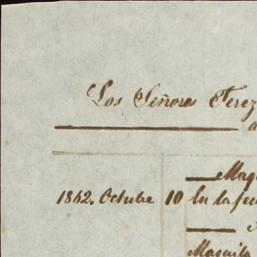 Los Señores Terez
a
Maq
1862. Octubre 10 En la fec
Maquila